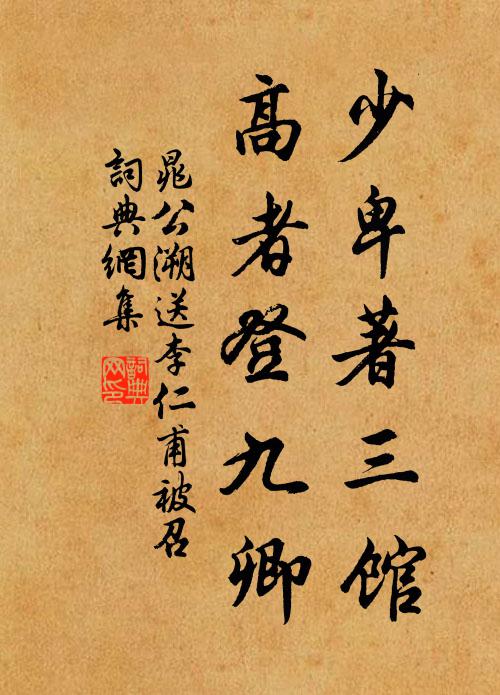 少卑著三馆
高者登九卿
晁公溯送李仁甫被召
詞典網集
詞典网印